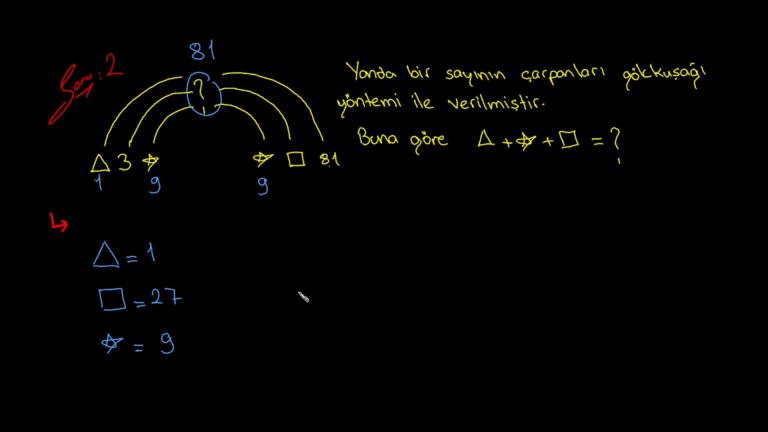 Soru: 2
81
?
△ 3 ☆ ☆ □ 81
1 9 9
Yanda bir sayının çarpanları gökkuşağı
yöntemi ile verilmiştir.
Buna göre △ + ☆ + □ = ?
△ = 1
□ = 27
☆ = 9